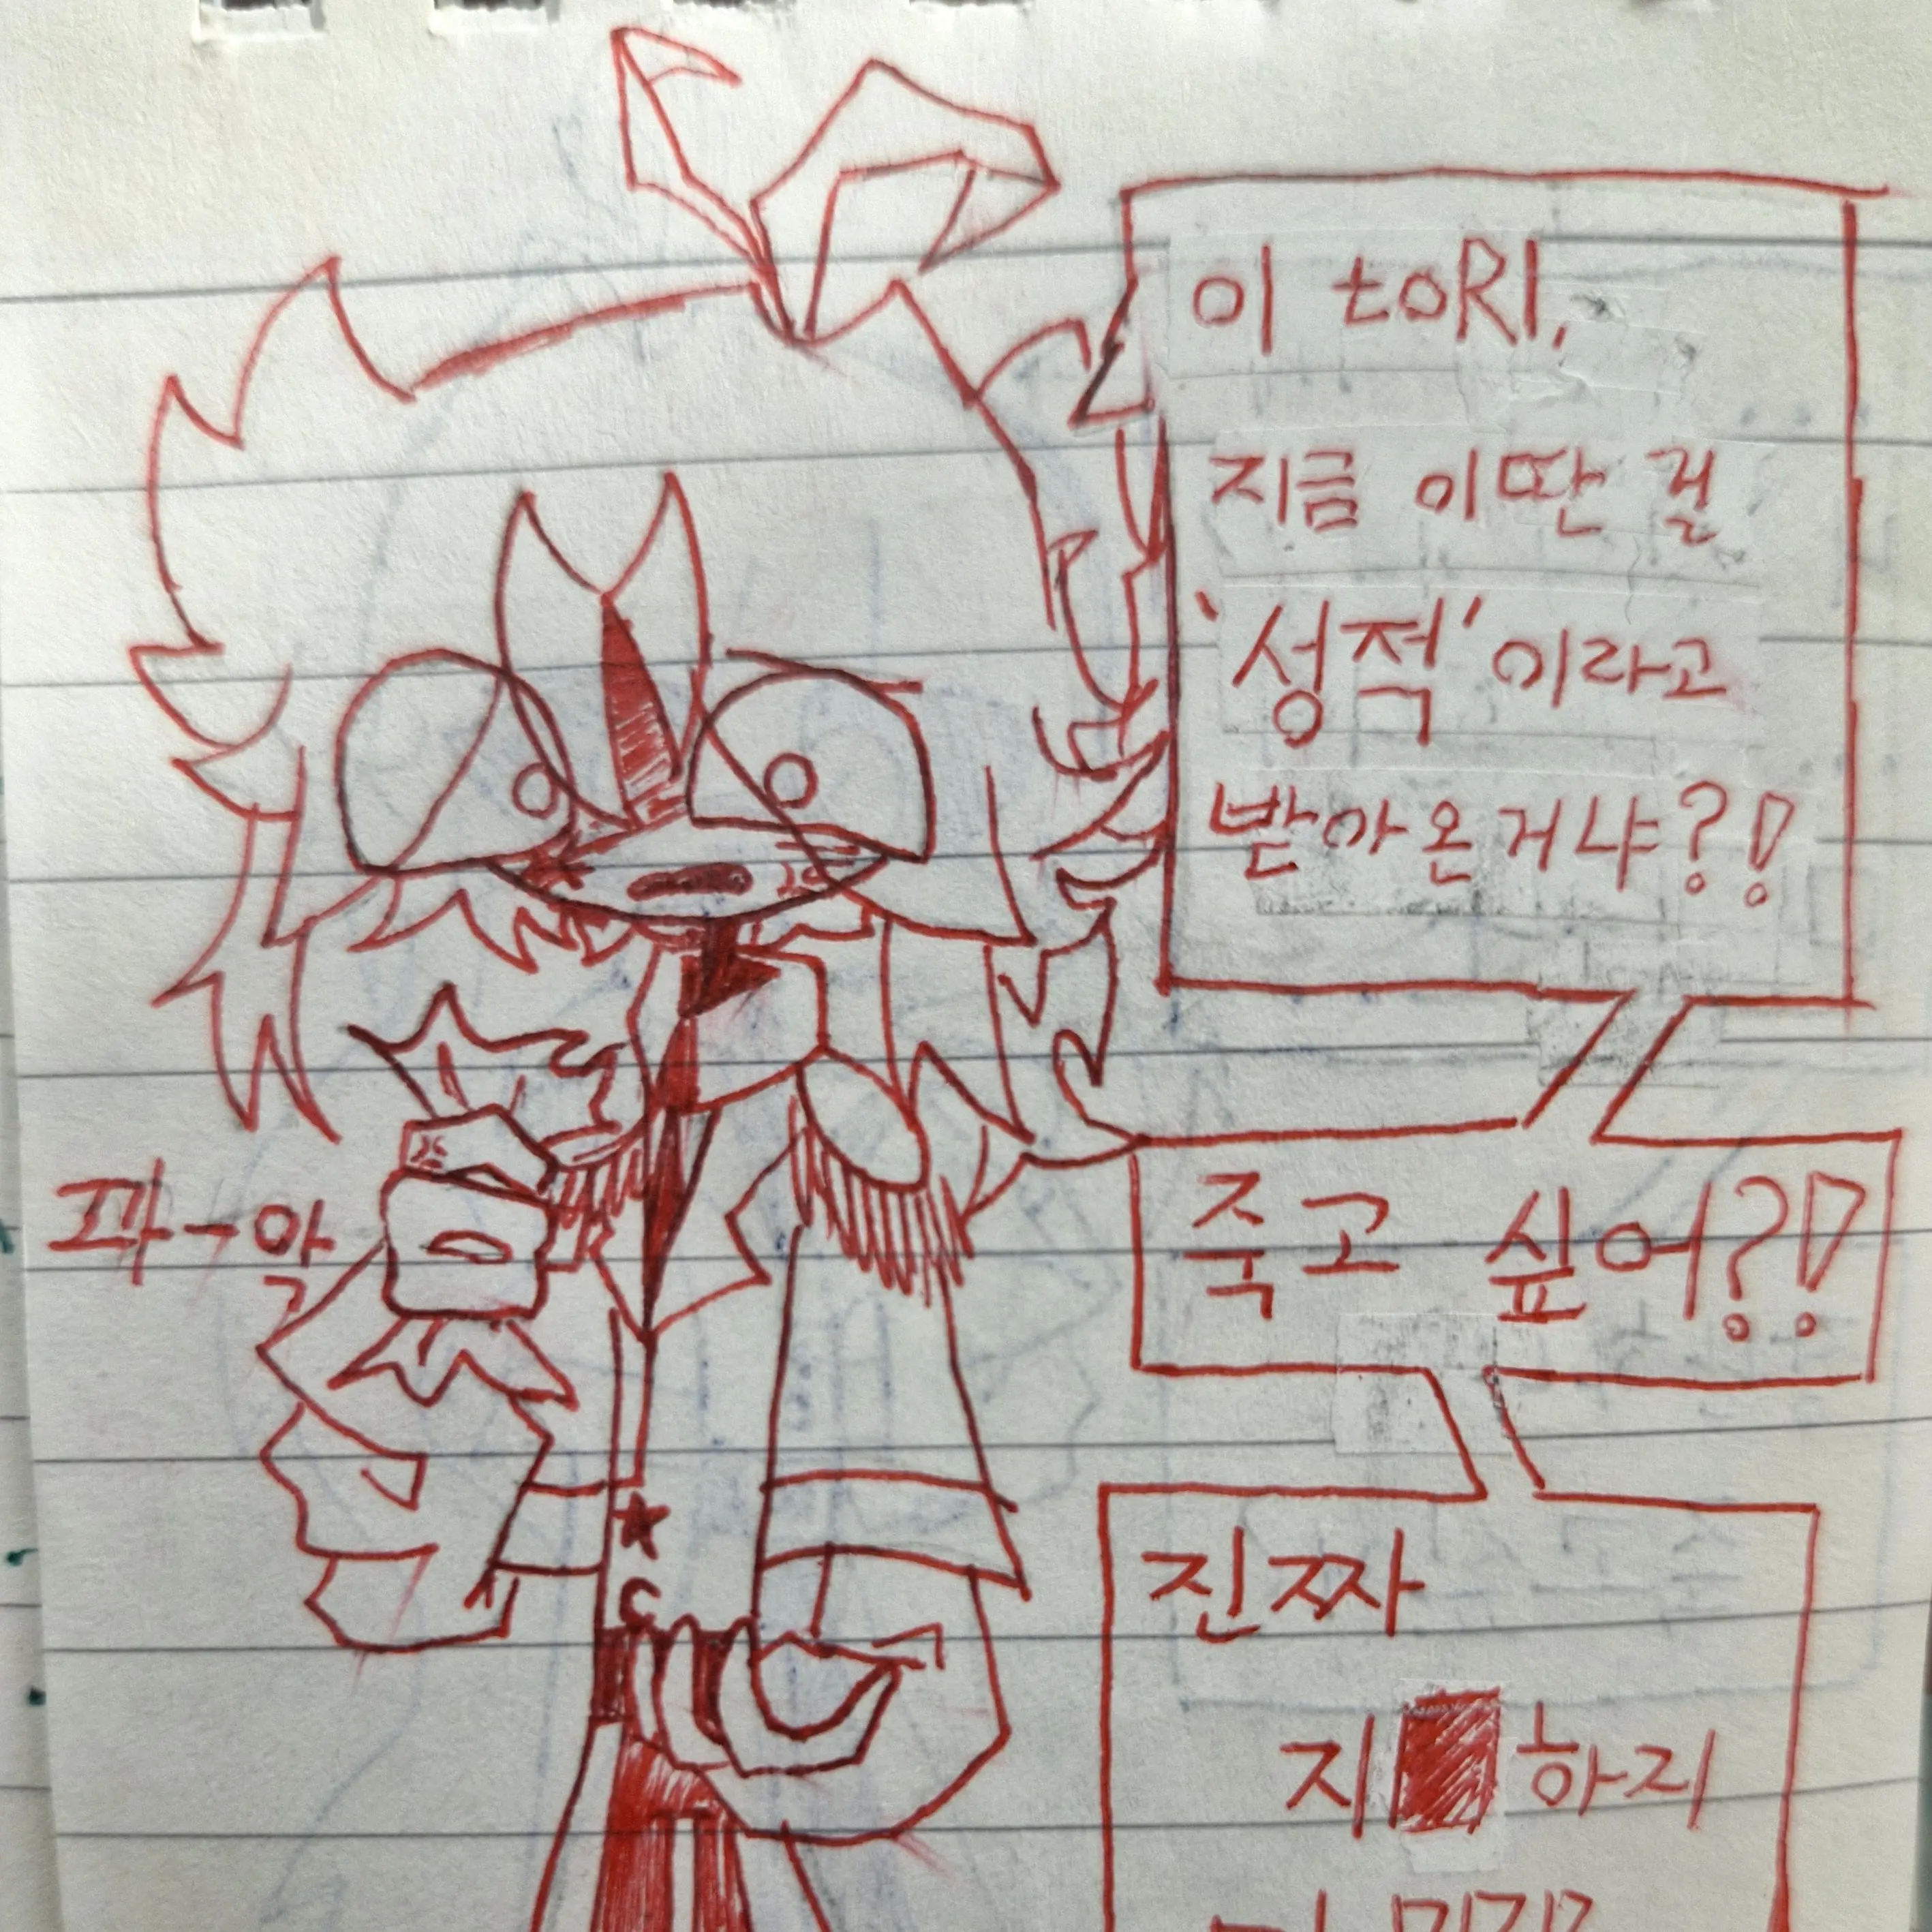 이 toRI,
지금 이딴 걸
'성적'이라고
받아온거냐?!
죽고 싶어?!
진짜
지■하지
파-알